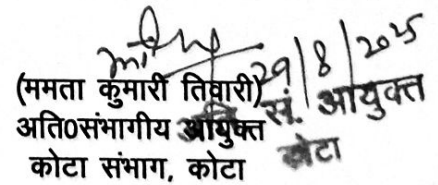 29/8/2025
(ममता कुमारी तिवारी)
अति0संभागीय आयुक्त
कोटा संभाग, कोटा
सं. आयुक्त
कोटा